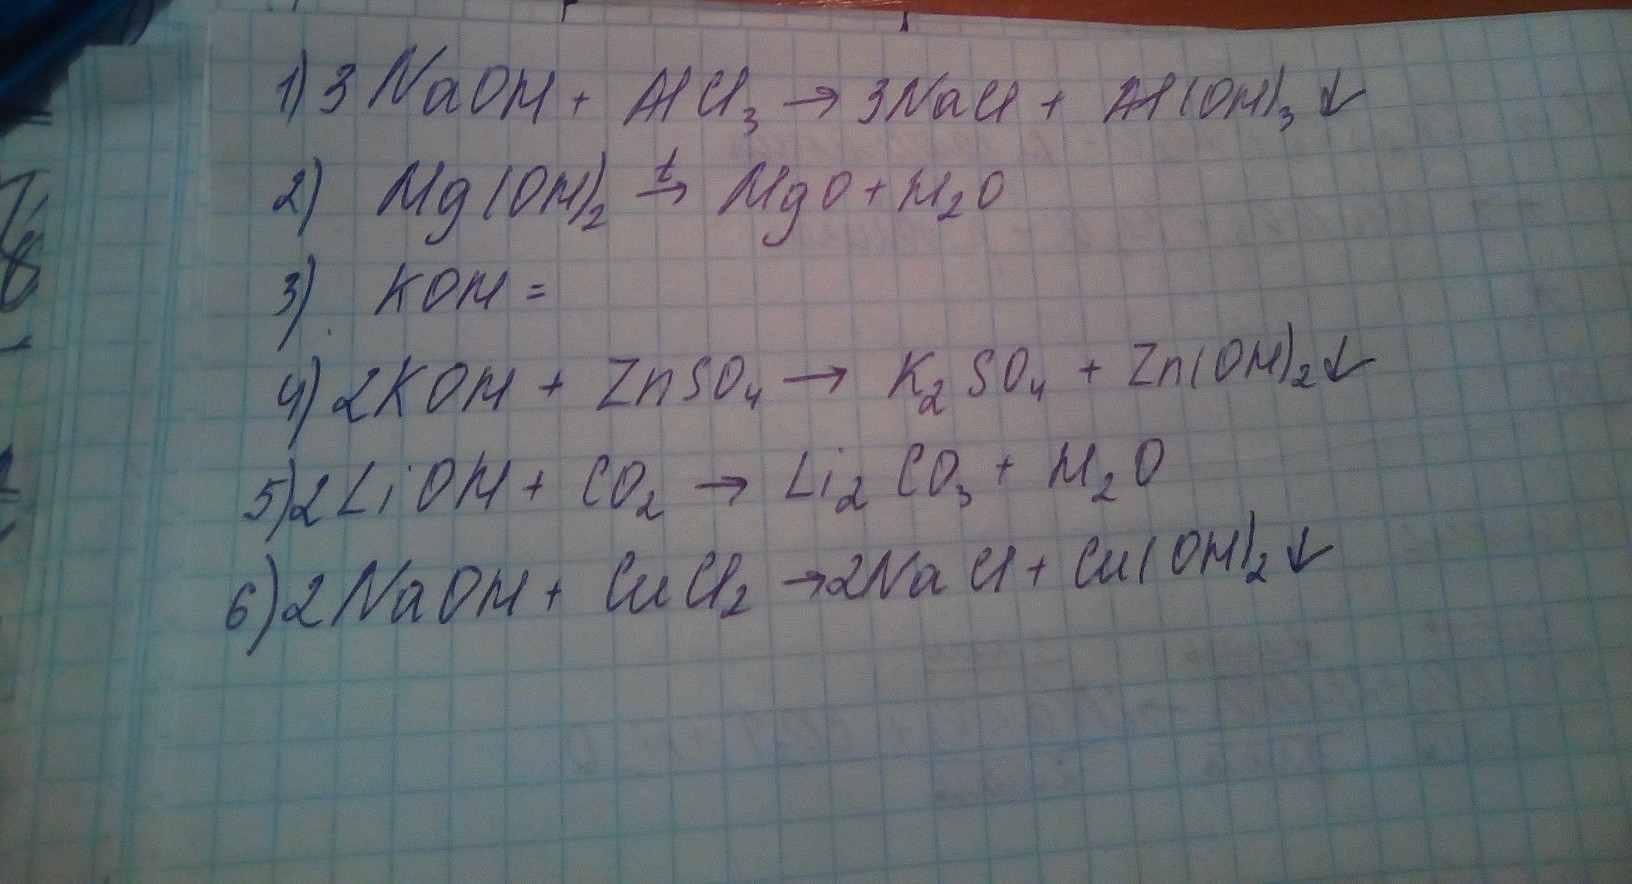 1) 3NaOH + AlCl₃ → 3NaCl + Al(OH)₃↓
2) Mg(OH)₂ →ᵗ MgO + H₂O
3) KOH =
4) 2KOH + ZnSO₄ → K₂SO₄ + Zn(OH)₂↓
5) 2LiOH + CO₂ → Li₂CO₃ + H₂O
6) 2NaOH + CuCl₂ → 2NaCl + Cu(OH)₂↓